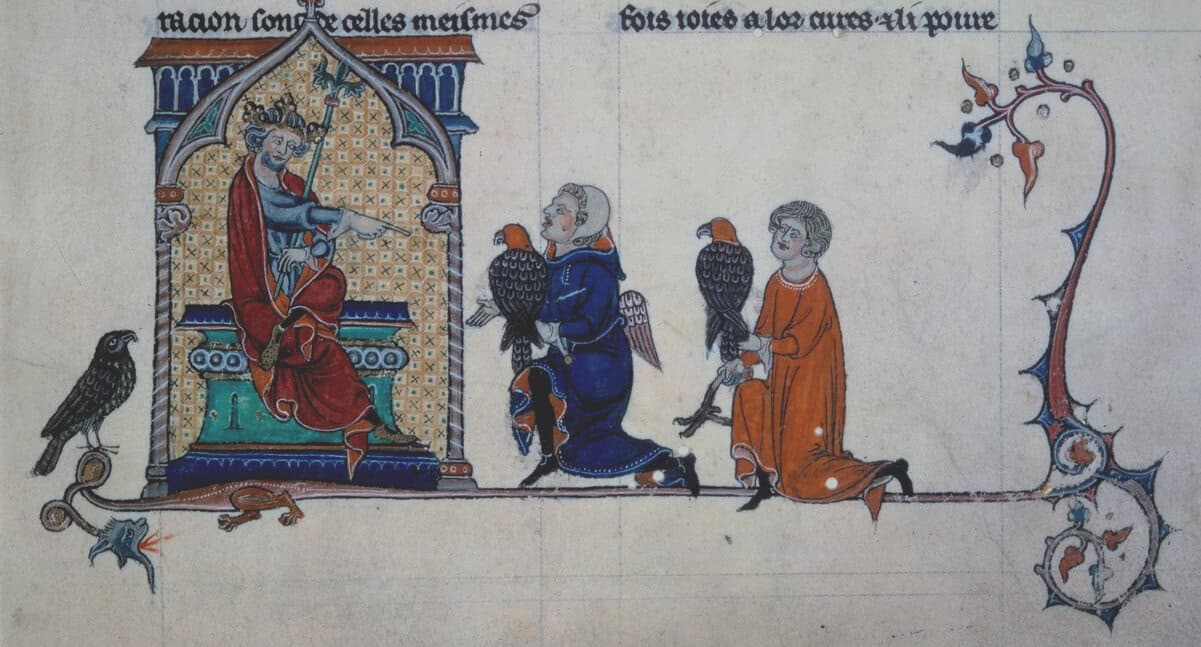 tacion sont de celles meismes
fois ioies a lor cures ⁊ li